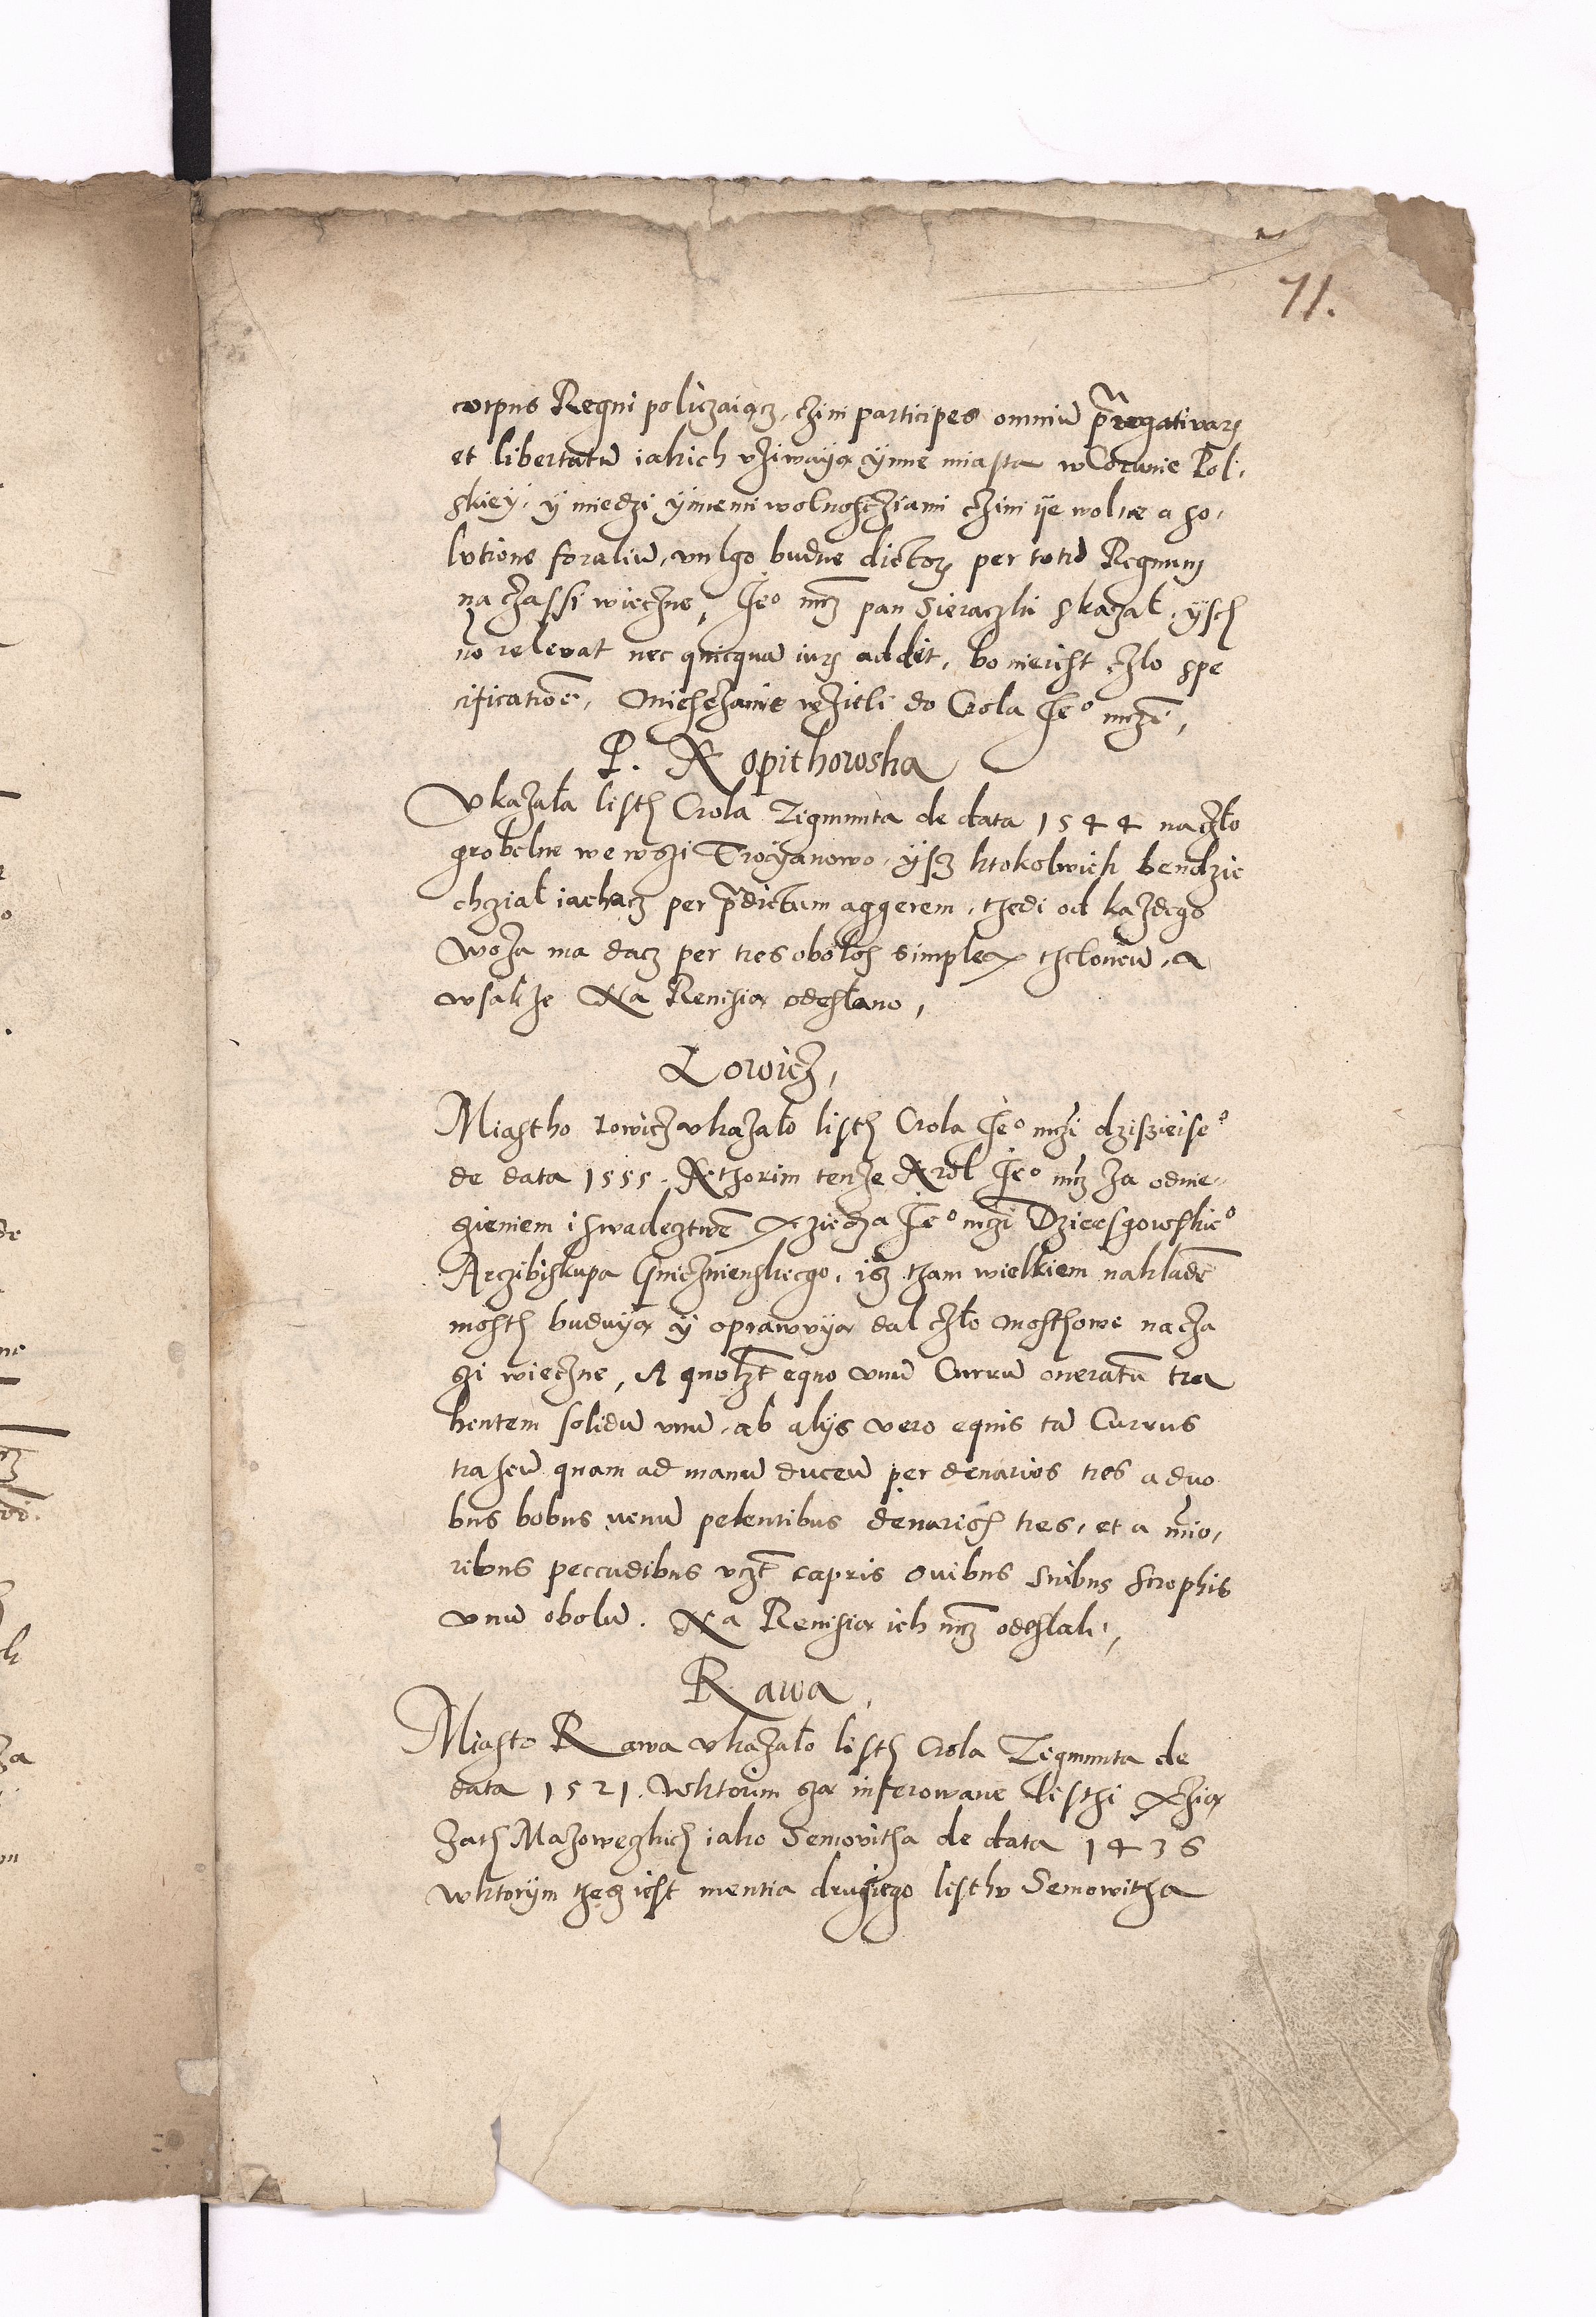 71.
corpus Regni policzaiącz, czini participes omniū p̄rogativarꝫ
et libertatū iakich vżiwaya ÿnne miasta wCorunie Pol,
skieÿ, ÿ miedzi ÿnnemi wolnoscziami czini ÿe wolne a so,
lutione foraliū, vulgo budne dictorꝫ per totū Regnum
na czassi wieczne, Je° mcz pan Sieraczki skazał, ÿsch
nō relevat nec quicquā iurꝫ addit, bo nieiest czlo spe
cificatioē, Miesczanie wzieli do Crola Je° mczi,
P. Kopithowska
vkazała listh Crola Zigmunta de data 1544 na czło
grobelne we wszi Troÿanowo, ÿsz ktokolwiek bendzie
chcział iachacz per p̄dictum aggerem, thedi od każdego
woza ma dacz per tres obolos simplex theloneū, a
wsakże Na Renisia odesłano,
Lowicz,
Miastho Lowicz vkazało listh Crola Je° mczi dzisieise°
de data 1555. Kthorim tenże Krol Je° mcz za odnie,
sieniem i swadecztwē Xziedza Je° mczi Dziersgowskie°
Arczibiskupa Gnieznienskiego, isz tham wielkiem nakladē
mosth buduÿa ÿ oprawuÿa dal czło mosthowe na cza
si wieczne, A quolꝫt equo vnū Currū oneratū tra
hentem solidū vnū, ab alÿs vero equis tā Currus
trahen̄ quam ad manū ducen̄ per denarios tres a duo
bus bobus venū pelentibus denarios tres, et a mīo,
ribus peccudibus vꝫt capris ovibus suibus scrophis
vnū obolū. Na Renisia ich mcz odesłali,
Rawa,
Miasto Rawa vkazało listh Crola Zigmunta de
data 1521. Wktorim sza inserowane listhi Xżia
żath Mazoweczkich iako Semovitha de data 1436
wktorÿm thesz iest mentia drugiego listhu Semowitha